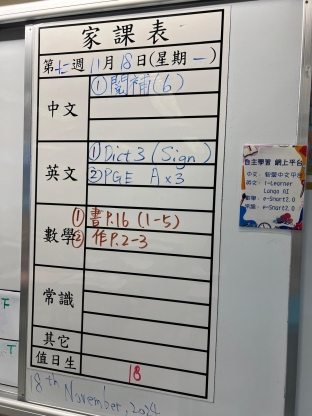 家課表
第十二週 11月18日(星期一)
中文
①閱補(6)
英文
①Dict 3 (Sign)
②PGE A x 3
數學
①書P.16 (1-5)
②作P.2-3
常識
其它
值日生
18
18th November, 2024
自主學習 網上平台
中文:智愛中文平台
英文:i-Learner
Longo AI
數學:e-Smart2.0
常識:e-Smart2.0
F
T